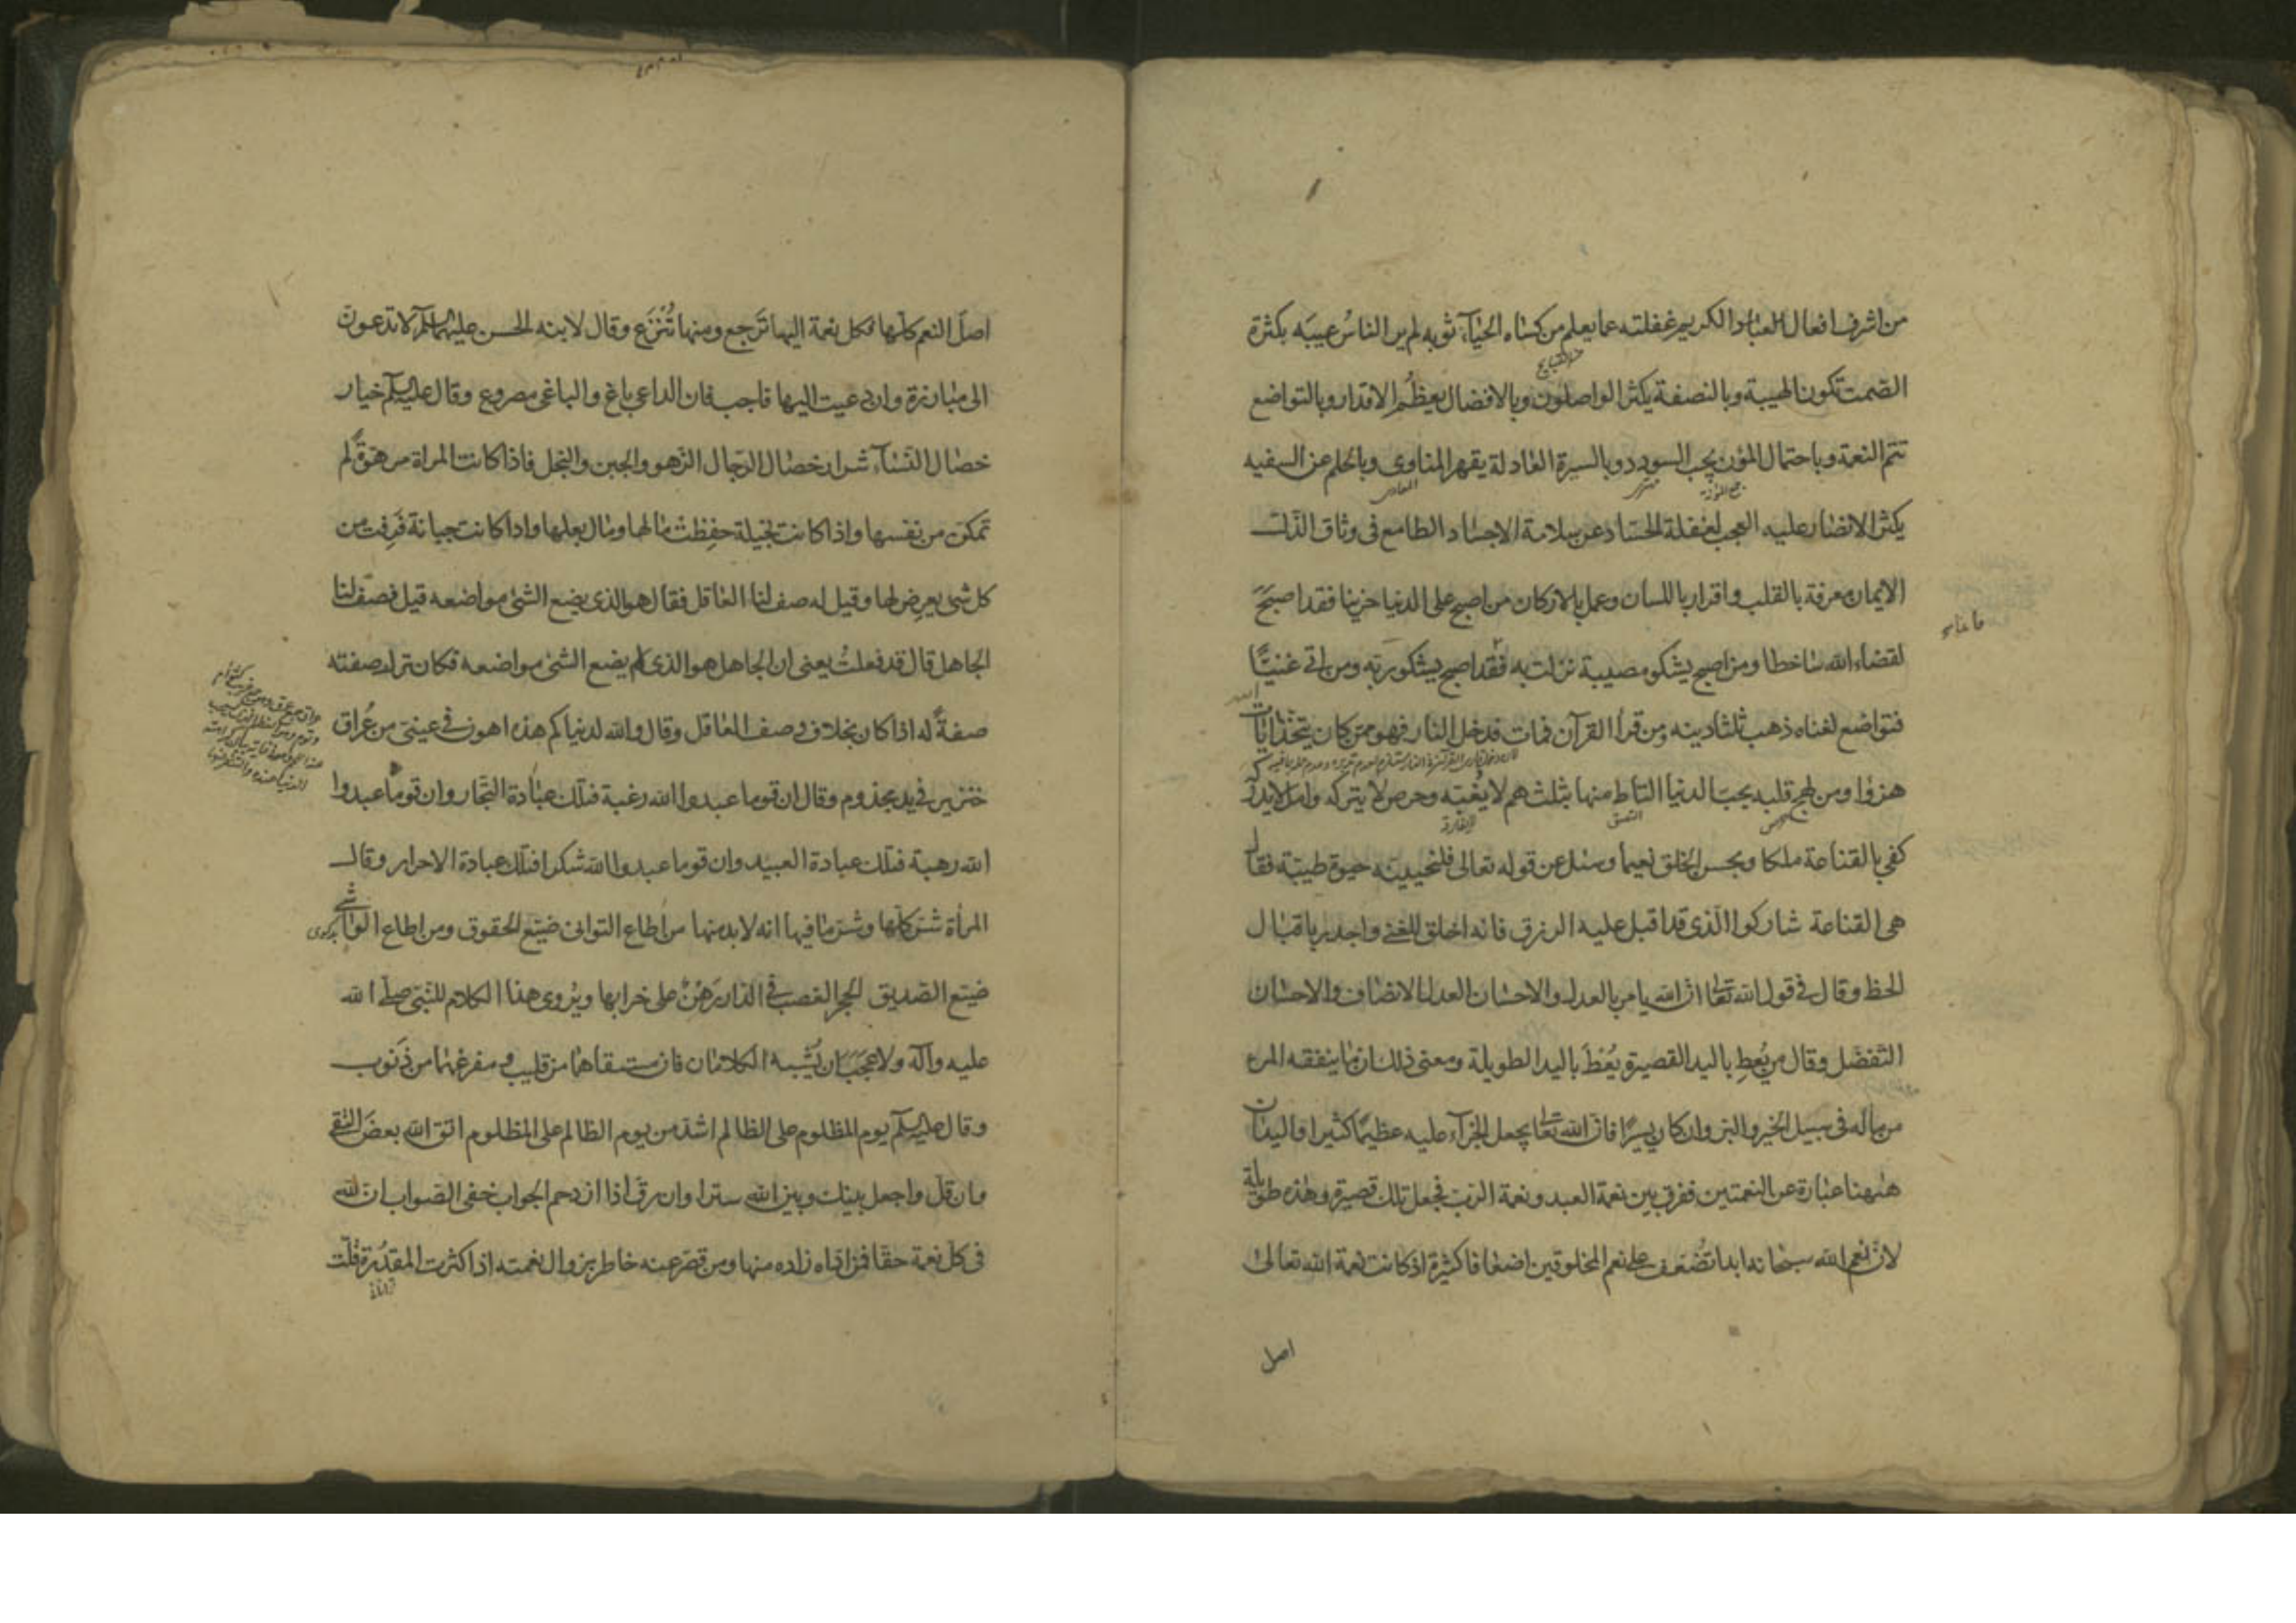 من اشرف افعال الكريم غفلته عما يعلم من كساه الحيآء ثوبه لم ير الناسُ عيبَه بكثرة
الصمت تكون الهيبة وبالنصفة يكثر الواصلون وبالافضال يعظُم الاقدار وبالتواضع
تتم النعمة وباحتمال المؤن يجب السودد وبالسيرة العادلة يقهر المناوى وبالحلم عن السفيه
جمع المؤنة
يكثر الانصار عليه العجب لغفلة الحساد عن سلامة الاجساد الطامع فى وثاق الذل
الايمان معرفة بالقلب واقرار باللسان وعمل بالاركان من اصبح على الدنيا حزينا فقد اصبحَ
لقضاء الله ساخطا ومن اصبح يشكو مصيبة نزلت به فقد اصبح يشكو ربّه ومن اتى غنيّا
فتواضع لغناه ذهب ثلثا دينه ومن قرأ القرآن فمات فدخل النار فهو ممن كان يتخذ ايات
الله
هزؤا ومن لهج قلبه بحب الدنيا التاط منها بثلث هم لا يُغبّه وحرص لا يتركه وامل لا يدركه
كفى بالقناعة ملكا وبحسن الخلق نعيما وسئل عن قوله تعالى فلنحيينه حيوة طيبة فقال
هى القناعة شاركوا الّذى قد اقبل عليه الرزق فانه اخلق للغنى واجدر باقبال
الحظ وقال فى قول الله تعا ان الله يامر بالعدل والاحسان العدل الانصاف والاحسان
التفضل وقال من يُعطِ باليد القصيرة يُعْطَ باليد الطويلة ومعنى ذلك ان ما ينفقه المرء
من ماله فى سبيل الخير والبر وان كان يسيرًا فان الله تعا يجعل الجزآء عليه عظيمًا كثيرا واليدان
هٰهنا عبارة عن النعمتين ففرق بين نعمة العبد ونعمة الرب فجعل تلك قصيرة وهذه طويلة
لان نعم الله سبحانه ابدا تُضْعَف على نعم المخلوقين اضعافا كثيرة اذ كانت نعمة الله تعالى
اصل
اصلَ النعم كلّها فكل نعمة اليها تَرجع ومنها تُنْزَع وقال لابنه الحسن عليهما السلم لا تدعون
الى مبارزة وان دعيت اليها فاجب فان الداعى باغ والباغى مصروع وقال عليه السلم خيار
خصال النسآء شرار خصال الرجال الزهو والجبن والبخل فاذا كانت المراة مزهوّةً لم
تمكن من نفسها واذا كانت بخيلة حفِظت مالها ومال بعلها واذا كانت جبانة فَرِقت من
كل شى يعرِض لها وقيل له صف لنا العاقل فقال هو الذى يضع الشئ مواضعه قيل فصف لنا
الجاهل قال قد فعلتُ يعنى ان الجاهل هو الذى لا يضع الشئ مواضعه فكان ترك صفته
صفةٌ له اذا كان بخلاف وصف العاقل وقال والله لدنياكم هذه اهون فى عينىَّ من عُراق
خنزير فى يد مجذوم وقال ان قوما عبدوا الله رغبة فتلك عبادة التّجار وان قوما عبدوا
الله رهبة فتلك عبادة العبيد وان قوما عبدوا الله شكرا فتلك عبادة الاحرار وقال
المرأة شرّ كلّها وشرّ ما فيها انه لا بد منها من اطاع التوانى ضيّع الحقوق ومن اطاع الواشى
ضيّع الصديق الحجر الغصب فى الدار رَهْنٌ على خرابها ويُروى هذا الكلام للنبّى صلى الله
عليه وآله ولا عجَبَ ان يُشبه الكلامان فان مستقاهما من قليب ومفرغهما من ذَنوب
وقال عليه السلم يوم المظلوم على الظالم اشد من يوم الظالم على المظلوم اتق الله بعضَ التقى
وان قلّ واجعل بينك وبين الله سترا وان رقّ اذا ازدحم الجواب خفى الصواب ان لله
فى كل نعمة حقا فمن اداه زاده منها ومن قصّر عنه خاطر بزوال نعمته اذا كثرت المقدُرة قلّت